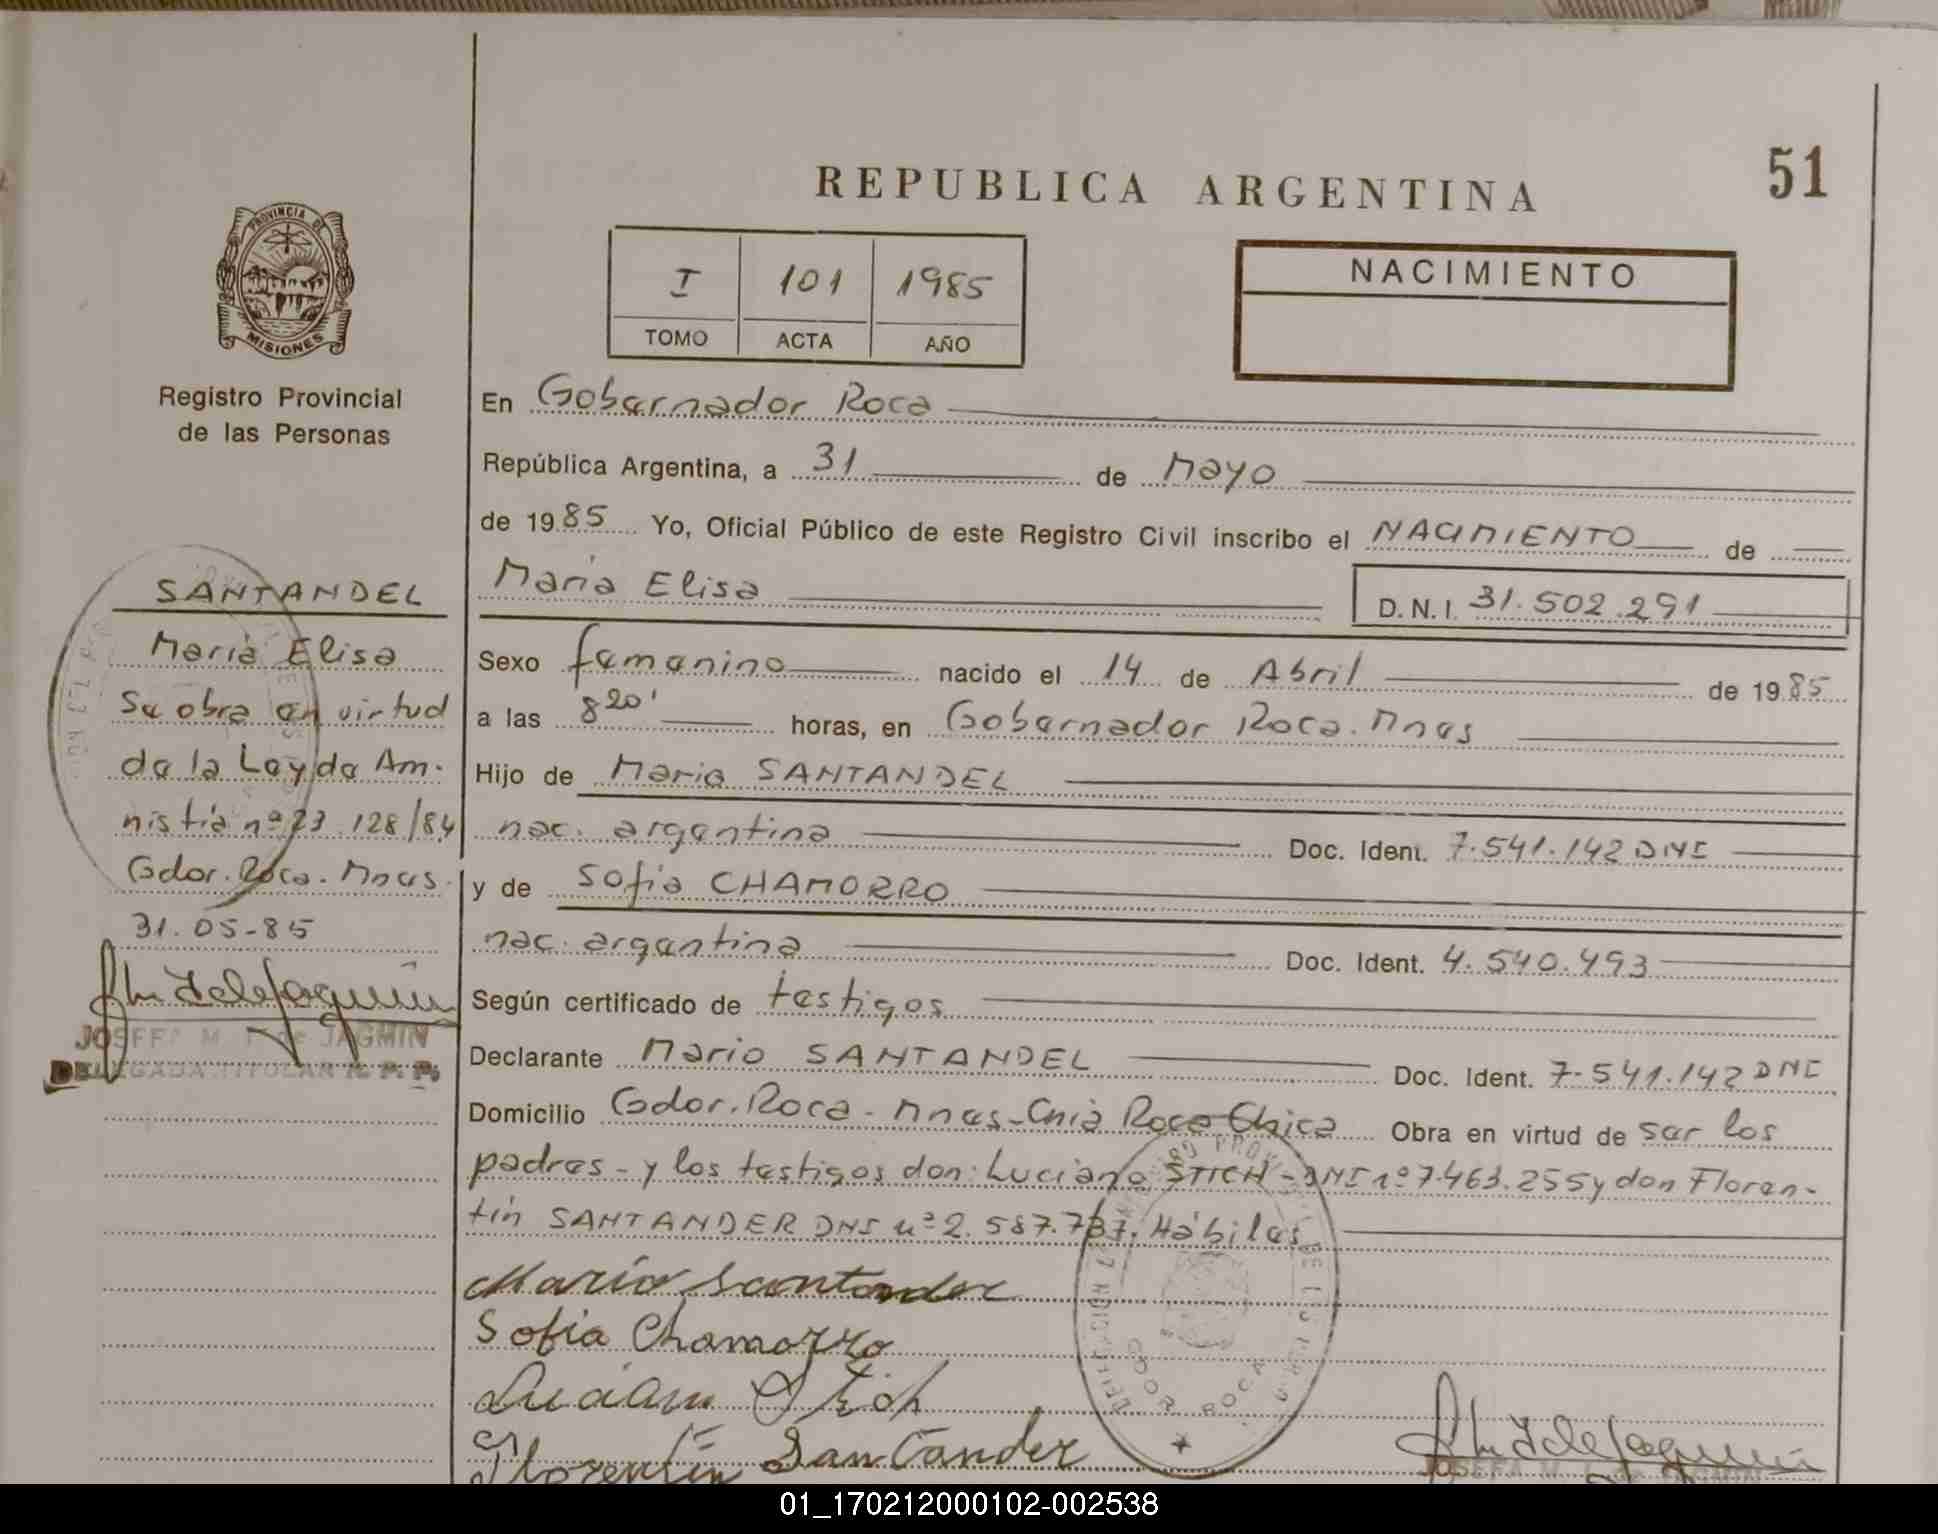 REPUBLICA ARGENTINA
51
PROVINCIA DE
MISIONES
Registro Provincial
de las Personas
I 101 1985
TOMO ACTA AÑO
NACIMIENTO
En Gobernador Roca
República Argentina, a 31 de Mayo
de 1985 Yo, Oficial Público de este Registro Civil inscribo el NACIMIENTO de
Maria Elisa D.N.I. 31.502.291
Sexo femenino nacido el 14 de Abril de 1985
a las 8 20' horas, en Gobernador Roca. Mnes
Hijo de Mario SANTANDEL
nac. argentina Doc. Ident. 7.541.142 DNI
y de Sofia CHAMORRO
nac. argentina Doc. Ident. 4.540.493
Según certificado de testigos
Declarante Mario SANTANDEL Doc. Ident. 7.541.142 DNI
Domicilio Gdor. Roca - Mnes - Cnia Roca Chica Obra en virtud de ser los
padres - y los testigos don: Luciano STICH - DNI nº 7.463.255 y don Floren-
tín SANTANDER DNI nº 2.587.787. Hábiles
Mario Santander
Sofia Chamorro
Lucian Stich
Florentín Santander
SANTANDEL
Maria Elisa
Se obra en virtud
de la Ley de Am-
nistia nº 23.128/84
Gdor. Roca. Mnes.
31.05-85
JOSEFA M. de JAGMIN
DELEGADA TITULAR R. P. P.
GDOR ROCA
JOSEFA M.
01_170212000102-002538